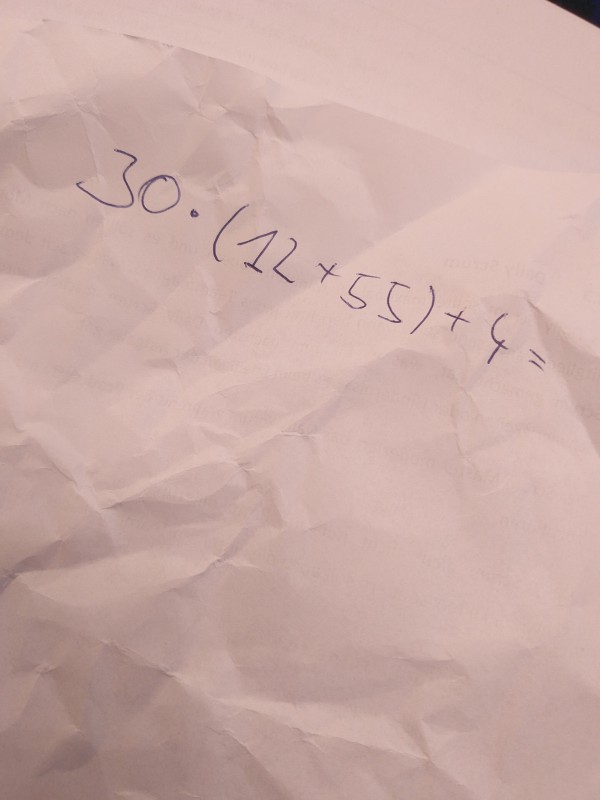 30·(12+55)+4=